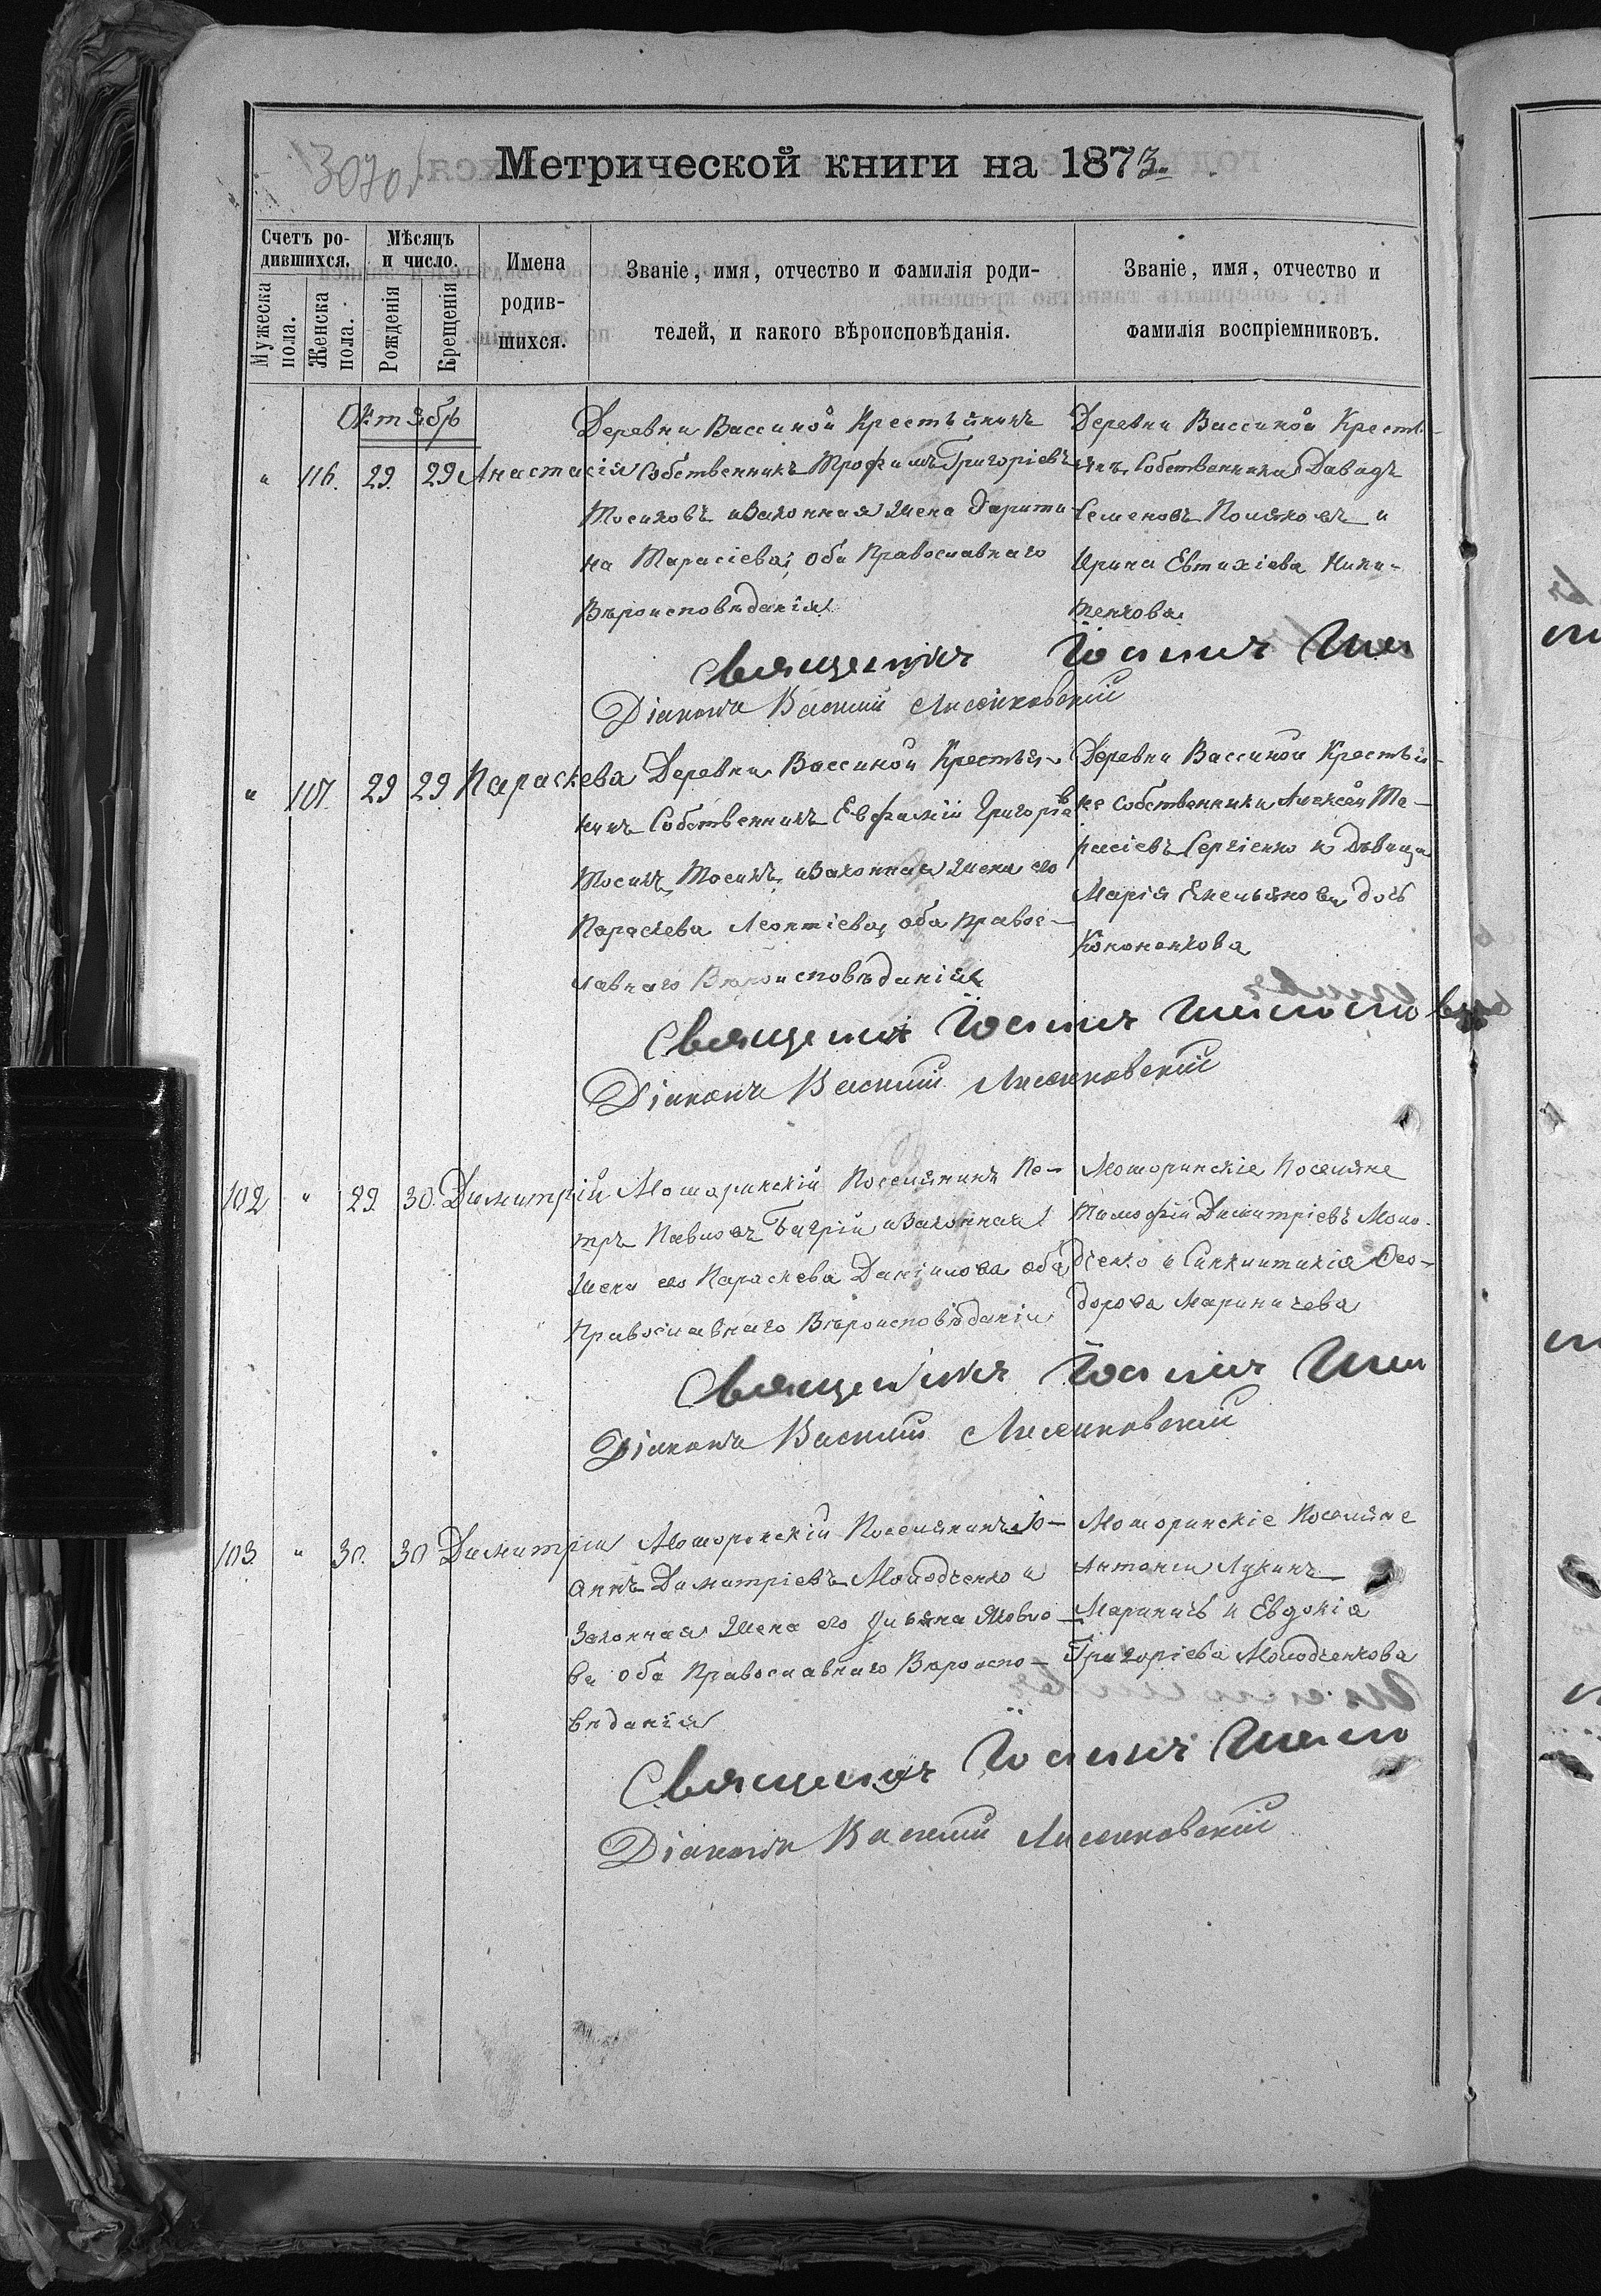 3070
Метрической книги на 1873.
Счетъ ро-
дившихся.
Мужеска
пола.
Женска
пола.
Мѣсяцъ
и число.
Рожденія
Крещенія
Имена
родив-
шихся.
Званіе, имя, отчество и фамилія роди-
телей, и какого вѣроисповѣданія.
Званіе, имя, отчество и
фамилія воспріемниковъ.
Октябрь
" 116. 29. 29 Анастасія
Деревни Вассиной Крестьянинъ
Собственникъ Трофимъ Григоріевъ
Мосиковъ и Законная Жена Харити
на Тарасіева; оба Православнаго
Вѣроисповѣданія
Деревни Вассиной Кресть-
янъ Собственники Давидъ
Семеновъ Поляковъ и
Ирина Евтихіева Ники-
тенкова
Священникъ Іоаннъ
Діаконъ Василій Лисенковскій
" 117. 29 29 Параскева
Деревни Вассиной Крестья-
нинъ Собственникъ Евфимій Григоріевъ
Мосикъ и Законная Жена его
Параскева Леонтіева, оба Правос-
лавнаго Вѣроисповѣданія
Деревни Вассиной Крестья-
не Собственники Алексѣй Та-
расіевъ Сергіенко и дѣвица
Марія Емельянова дочь
Кононенкова
Священникъ Іоаннъ
Діаконъ Василій Лисенковскій
102 " 29 30. Димитрій
Моторинскій Поселянинъ Пе-
тръ Павловъ Багрій и Законная
Жена его Параскева Даніилова оба
Православнаго Вѣроисповѣданія
Моторинскіе Поселяне
Тимофій Димитріевъ Моло-
дченко и Синклитикія Фео-
дорова Мариничева
Священникъ Іоаннъ
Діаконъ Василій Лисенковскій
103 " 30. 30 Димитрій
Моторинскій Поселянинъ Іо-
аннъ Димитріевъ Молодченко и
Законная Жена его Ульяна Яковле-
ва оба Православнаго Вѣроиспо-
вѣданія
Моторинскіе Поселяне
Антоній Лукинъ
Мариничъ и Евдокія
Григоріева Молодченкова
Священникъ Іоаннъ
Діаконъ Василій Лисенковскій